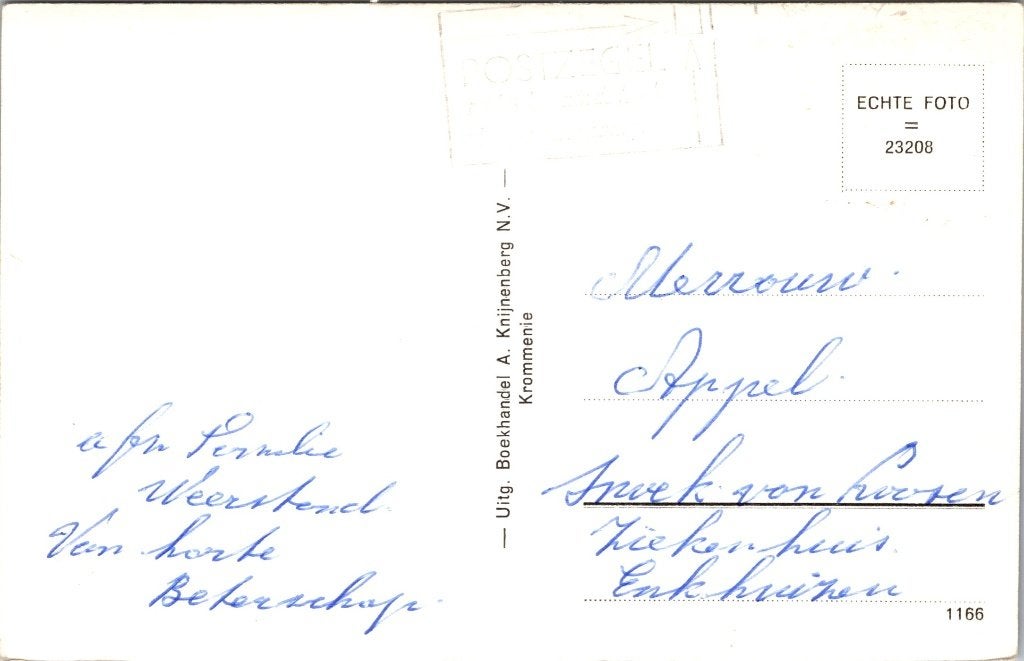 POSTZEGEL
ECHTE FOTO
=
23208
— Uitg. Boekhandel A. Knijnenberg N.V. —
Krommenie
afzn Familie
Weerstand.
Van harte
Beterschap.
Mevrouw.
Appel.
Snoek van Loosen
Ziekenhuis.
Enkhuizen
1166